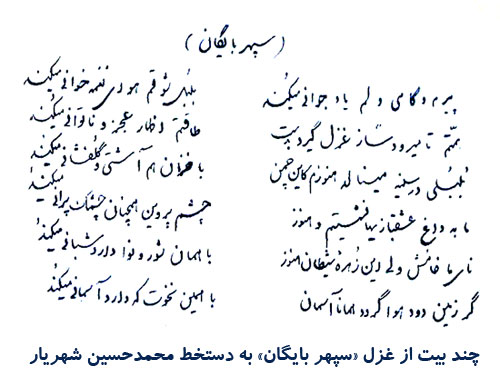 (سپهر بایگان)
پیرم و گاهی دلم یاد جوانی میکند
بلبل شوقم هوای نغمه خوانی میکند
همتم تا میرود ساز غزل گیرد بدست
طاقتم اظهار عجز و ناتوانی میکند
بلبلی در سینه مینالد هنوزم کاین چمن
با خزان هم آشتی و گلفشانی میکند
ما به داغ عشقبازیها نشستیم و هنوز
چشم پروین همچنان چشمک پرانی میکند
نای ما خامش ولی این زهرهٔ شیطان هنوز
با همان شور و نوا دارد شبانی میکند
گر زمین دود هوا گردد همانا آسمان
با همین نخوت که دارد آسمانی میکند
چند بیت از غزل «سپهر بایگان» به دستخط محمدحسین شهریار